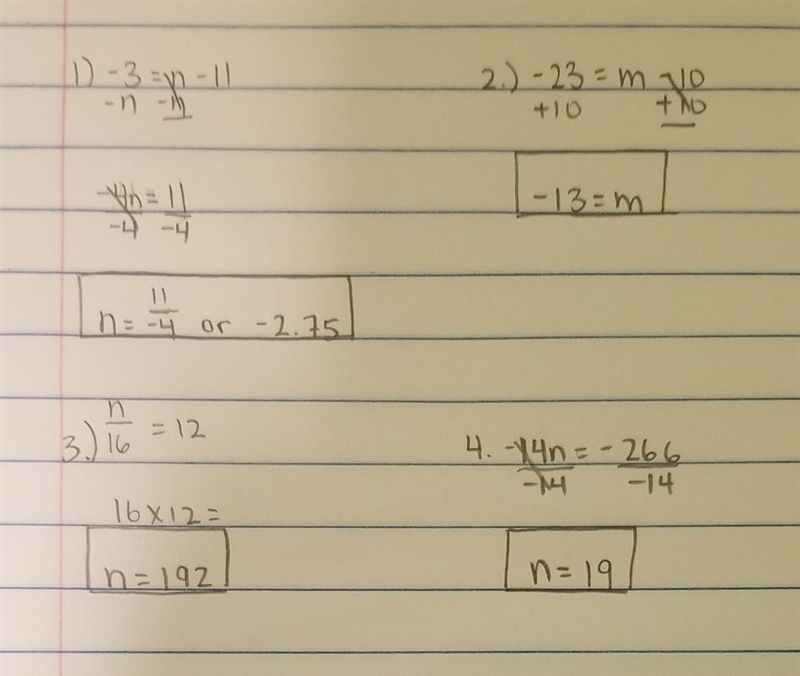 1) -3 = n - 11
-n -n
-4n = 11
-4 -4
n = 11/-4 or -2.75
2.) -23 = m - 10
+10 +10
-13 = m
3.) n/16 = 12
16 x 12 =
n = 192
4. -14n = -266
-14 -14
n = 19